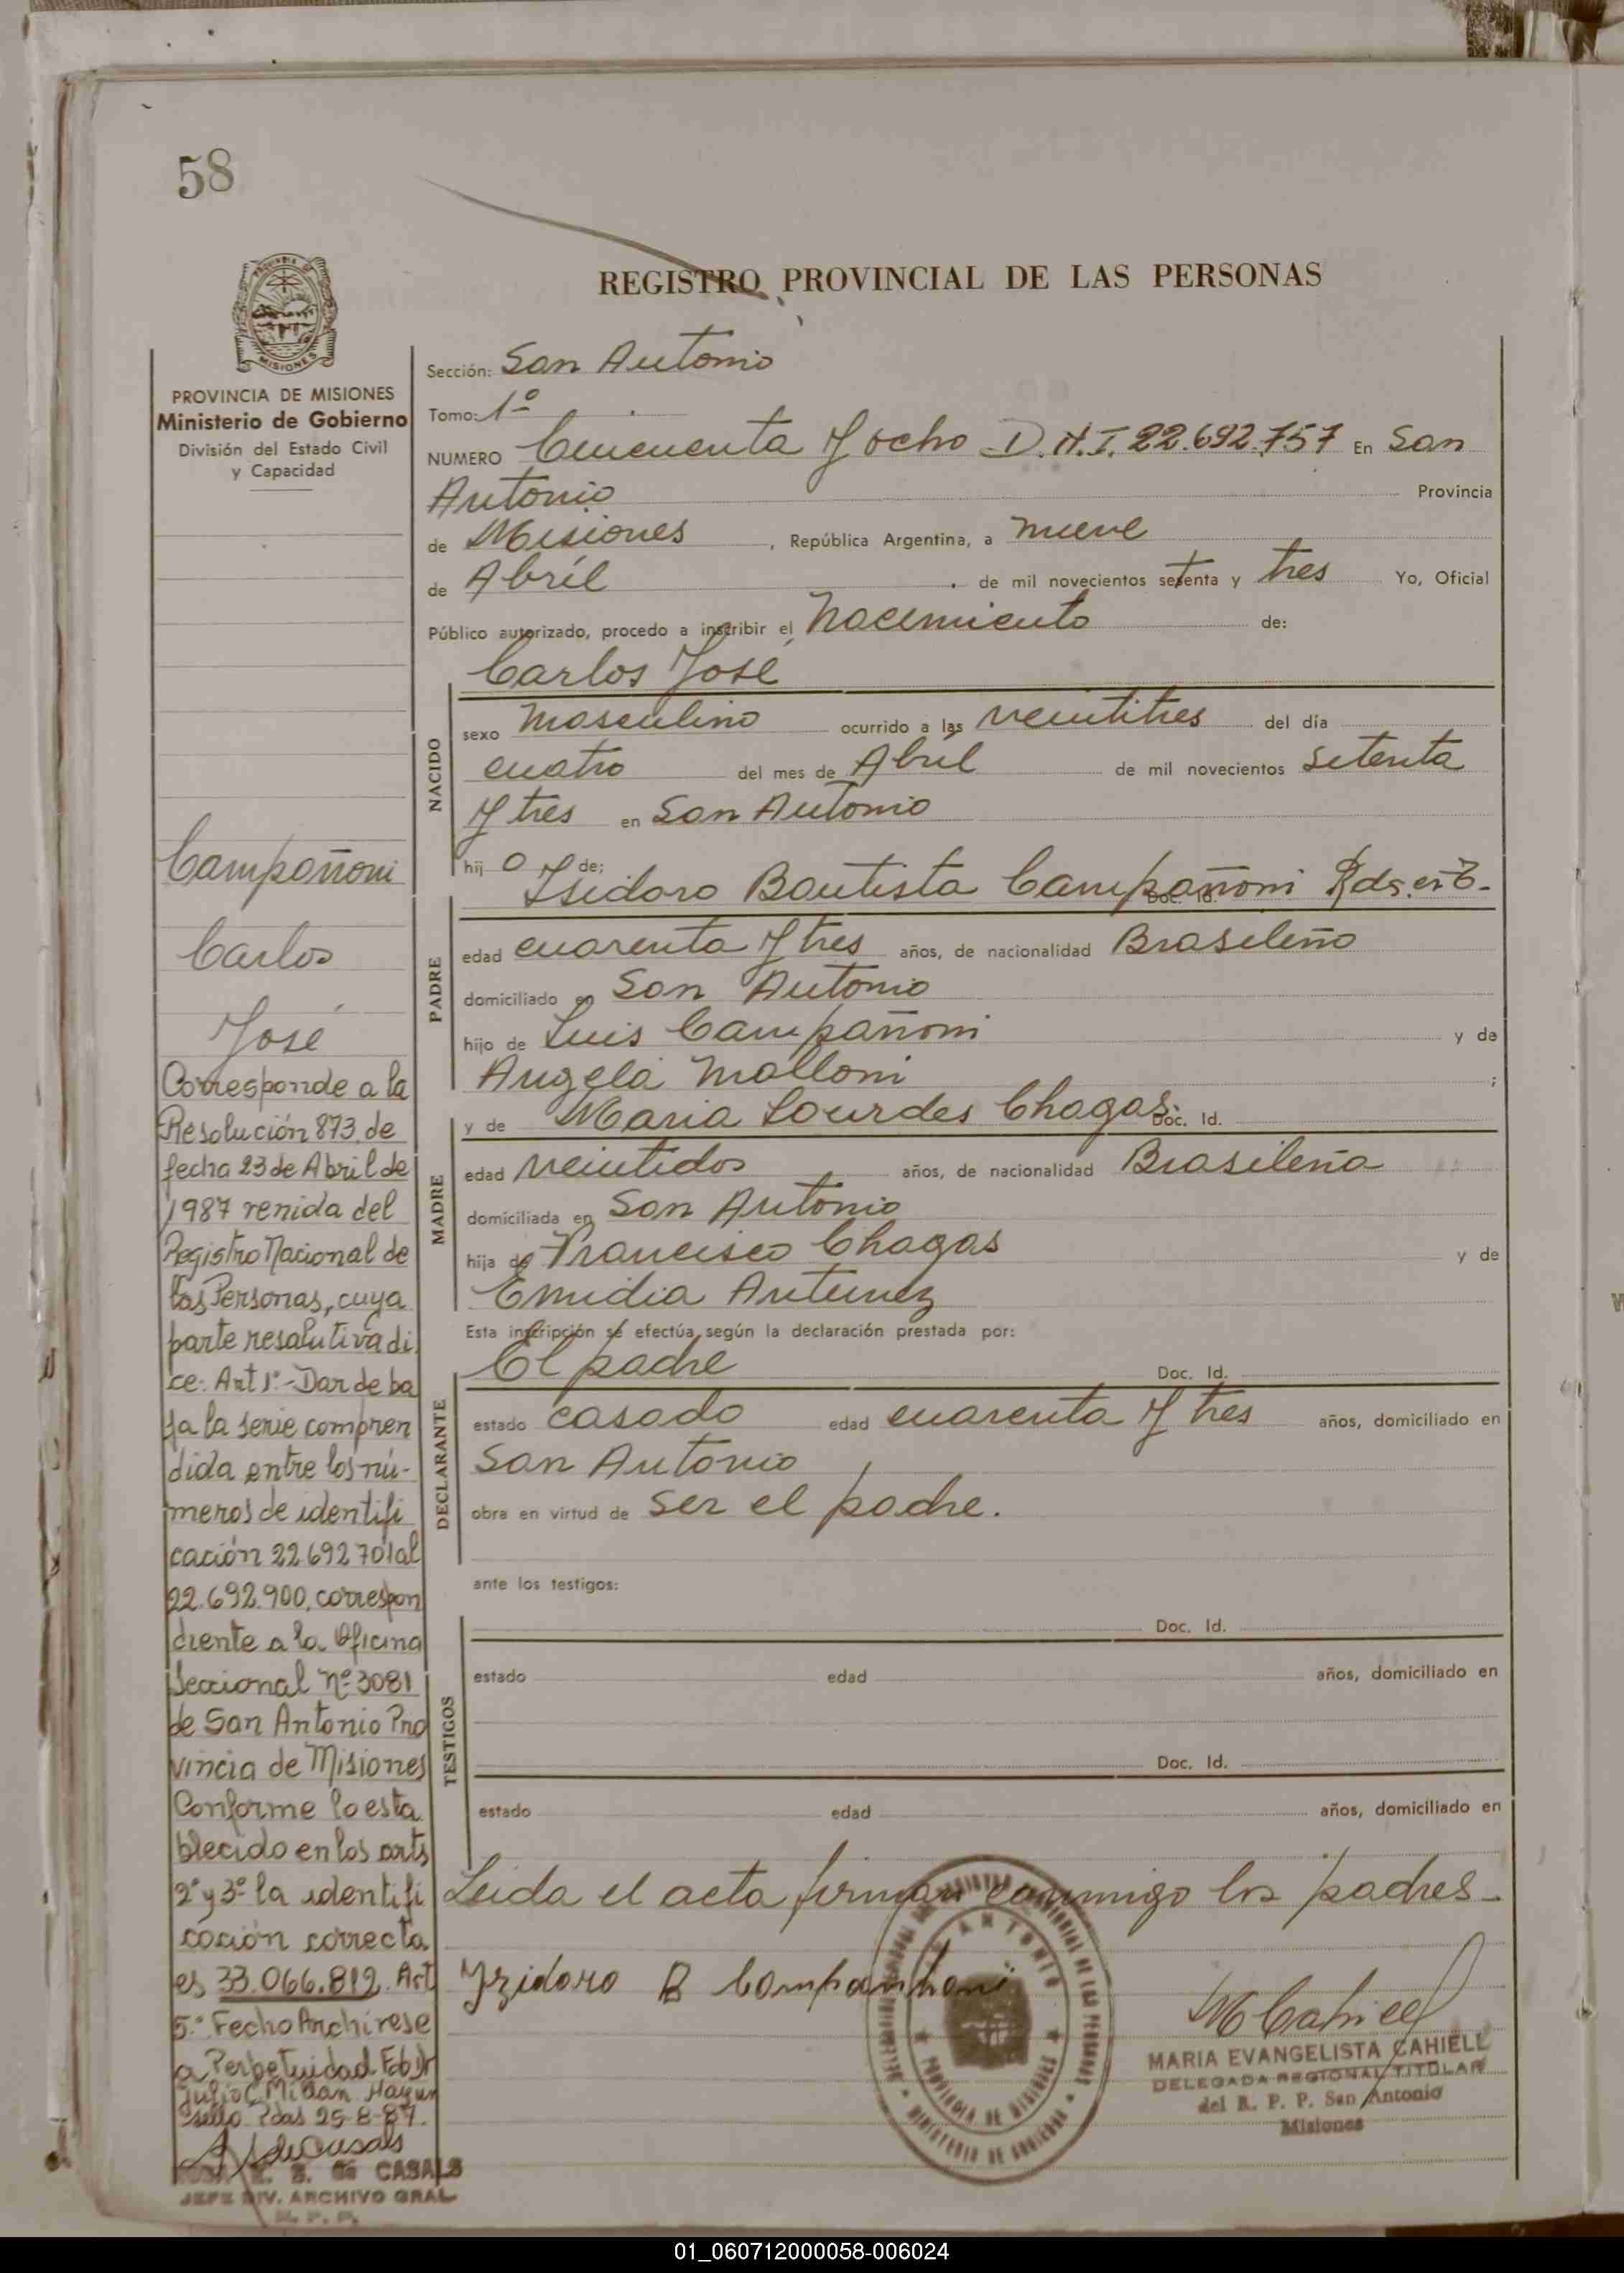 58
REGISTRO PROVINCIAL DE LAS PERSONAS
MISIONES
PROVINCIA DE MISIONES
Ministerio de Gobierno
División del Estado Civil
y Capacidad
Campañoni
Carlos
José
Corresponde a la
Resolución 873, de
fecha 23 de Abril de
1987 venida del
Registro Nacional de
las Personas, cuya
parte resolutiva di
ce: Art 1º - Dar de ba
ja la serie compren
dida entre los nú-
meros de identifi
cación 22 692 701 al
22.692.900, correspon
diente a la Oficina
Seccional Nº 3081
de San Antonio Pro
vincia de Misiones
Conforme lo esta
blecido en los arts
2º y 3º la identifi
cación correcta
es 33.066.812. Art
5º Fecho Archivese
a Perpetuidad
Julio C. Milan
sello Pdas 25-8-87.
de CASALS
JEFE DIV. ARCHIVO GRAL
R. P. P.
Sección: San Antonio
Tomo: 1º
NUMERO Cincuenta y ocho D.N.I. 22.692.757 En San
Antonio Provincia
de Misiones, República Argentina, a nueve
de Abril de mil novecientos setenta y tres Yo, Oficial
Público autorizado, procedo a inscribir el Nacimiento de:
Carlos José
NACIDO
sexo Masculino ocurrido a las veintitres del día
cuatro del mes de Abril de mil novecientos setenta
y tres en San Antonio
hij o de:
Isidoro Bautista Campañoni Doc. Id.
PADRE
edad cuarenta y tres años, de nacionalidad Brasileño
domiciliado en San Antonio
hijo de Luis Campañoni y de
Angela Molloni ;
y de Maria Lourdes Chagas: Doc. Id.
MADRE
edad veintidos años, de nacionalidad Brasileña
domiciliada en San Antonio
hija de Francisco Chagas y de
Emidia Antunez
Esta inscripción se efectúa según la declaración prestada por:
El padre Doc. Id.
DECLARANTE
estado casado edad cuarenta y tres años, domiciliado en
San Antonio
obra en virtud de ser el padre.
ante los testigos:
Doc. Id.
TESTIGOS
estado edad años, domiciliado en
Doc. Id.
estado edad años, domiciliado en
Leida el acta firman conmigo los padres.
Yzidoro B Companhoni
M Cahiell
MARIA EVANGELISTA CAHIELL
DELEGADA REGIONAL TITULAR
del R. P. P. San Antonio
Misiones
PROVINCIA DE MISIONES
MINISTERIO DE GOBIERNO
01_060712000058-006024